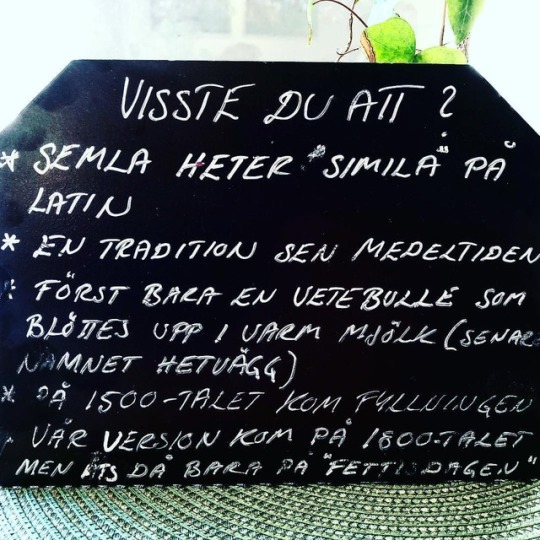 VISSTE DU ATT ?
* SEMLA HETER "SIMILA" PÅ
LATIN
* EN TRADITION SEN MEDELTIDEN
* FÖRST BARA EN VETEBULLE SOM
BLÖTTES UPP I VARM MJÖLK (SENARE
NAMNET HETVÄGG)
* PÅ 1500-TALET KOM FYLLNINGEN
* VÅR VERSION KOM PÅ 1800-TALET
MEN ÄTS DÅ BARA PÅ "FETTISDAGEN"